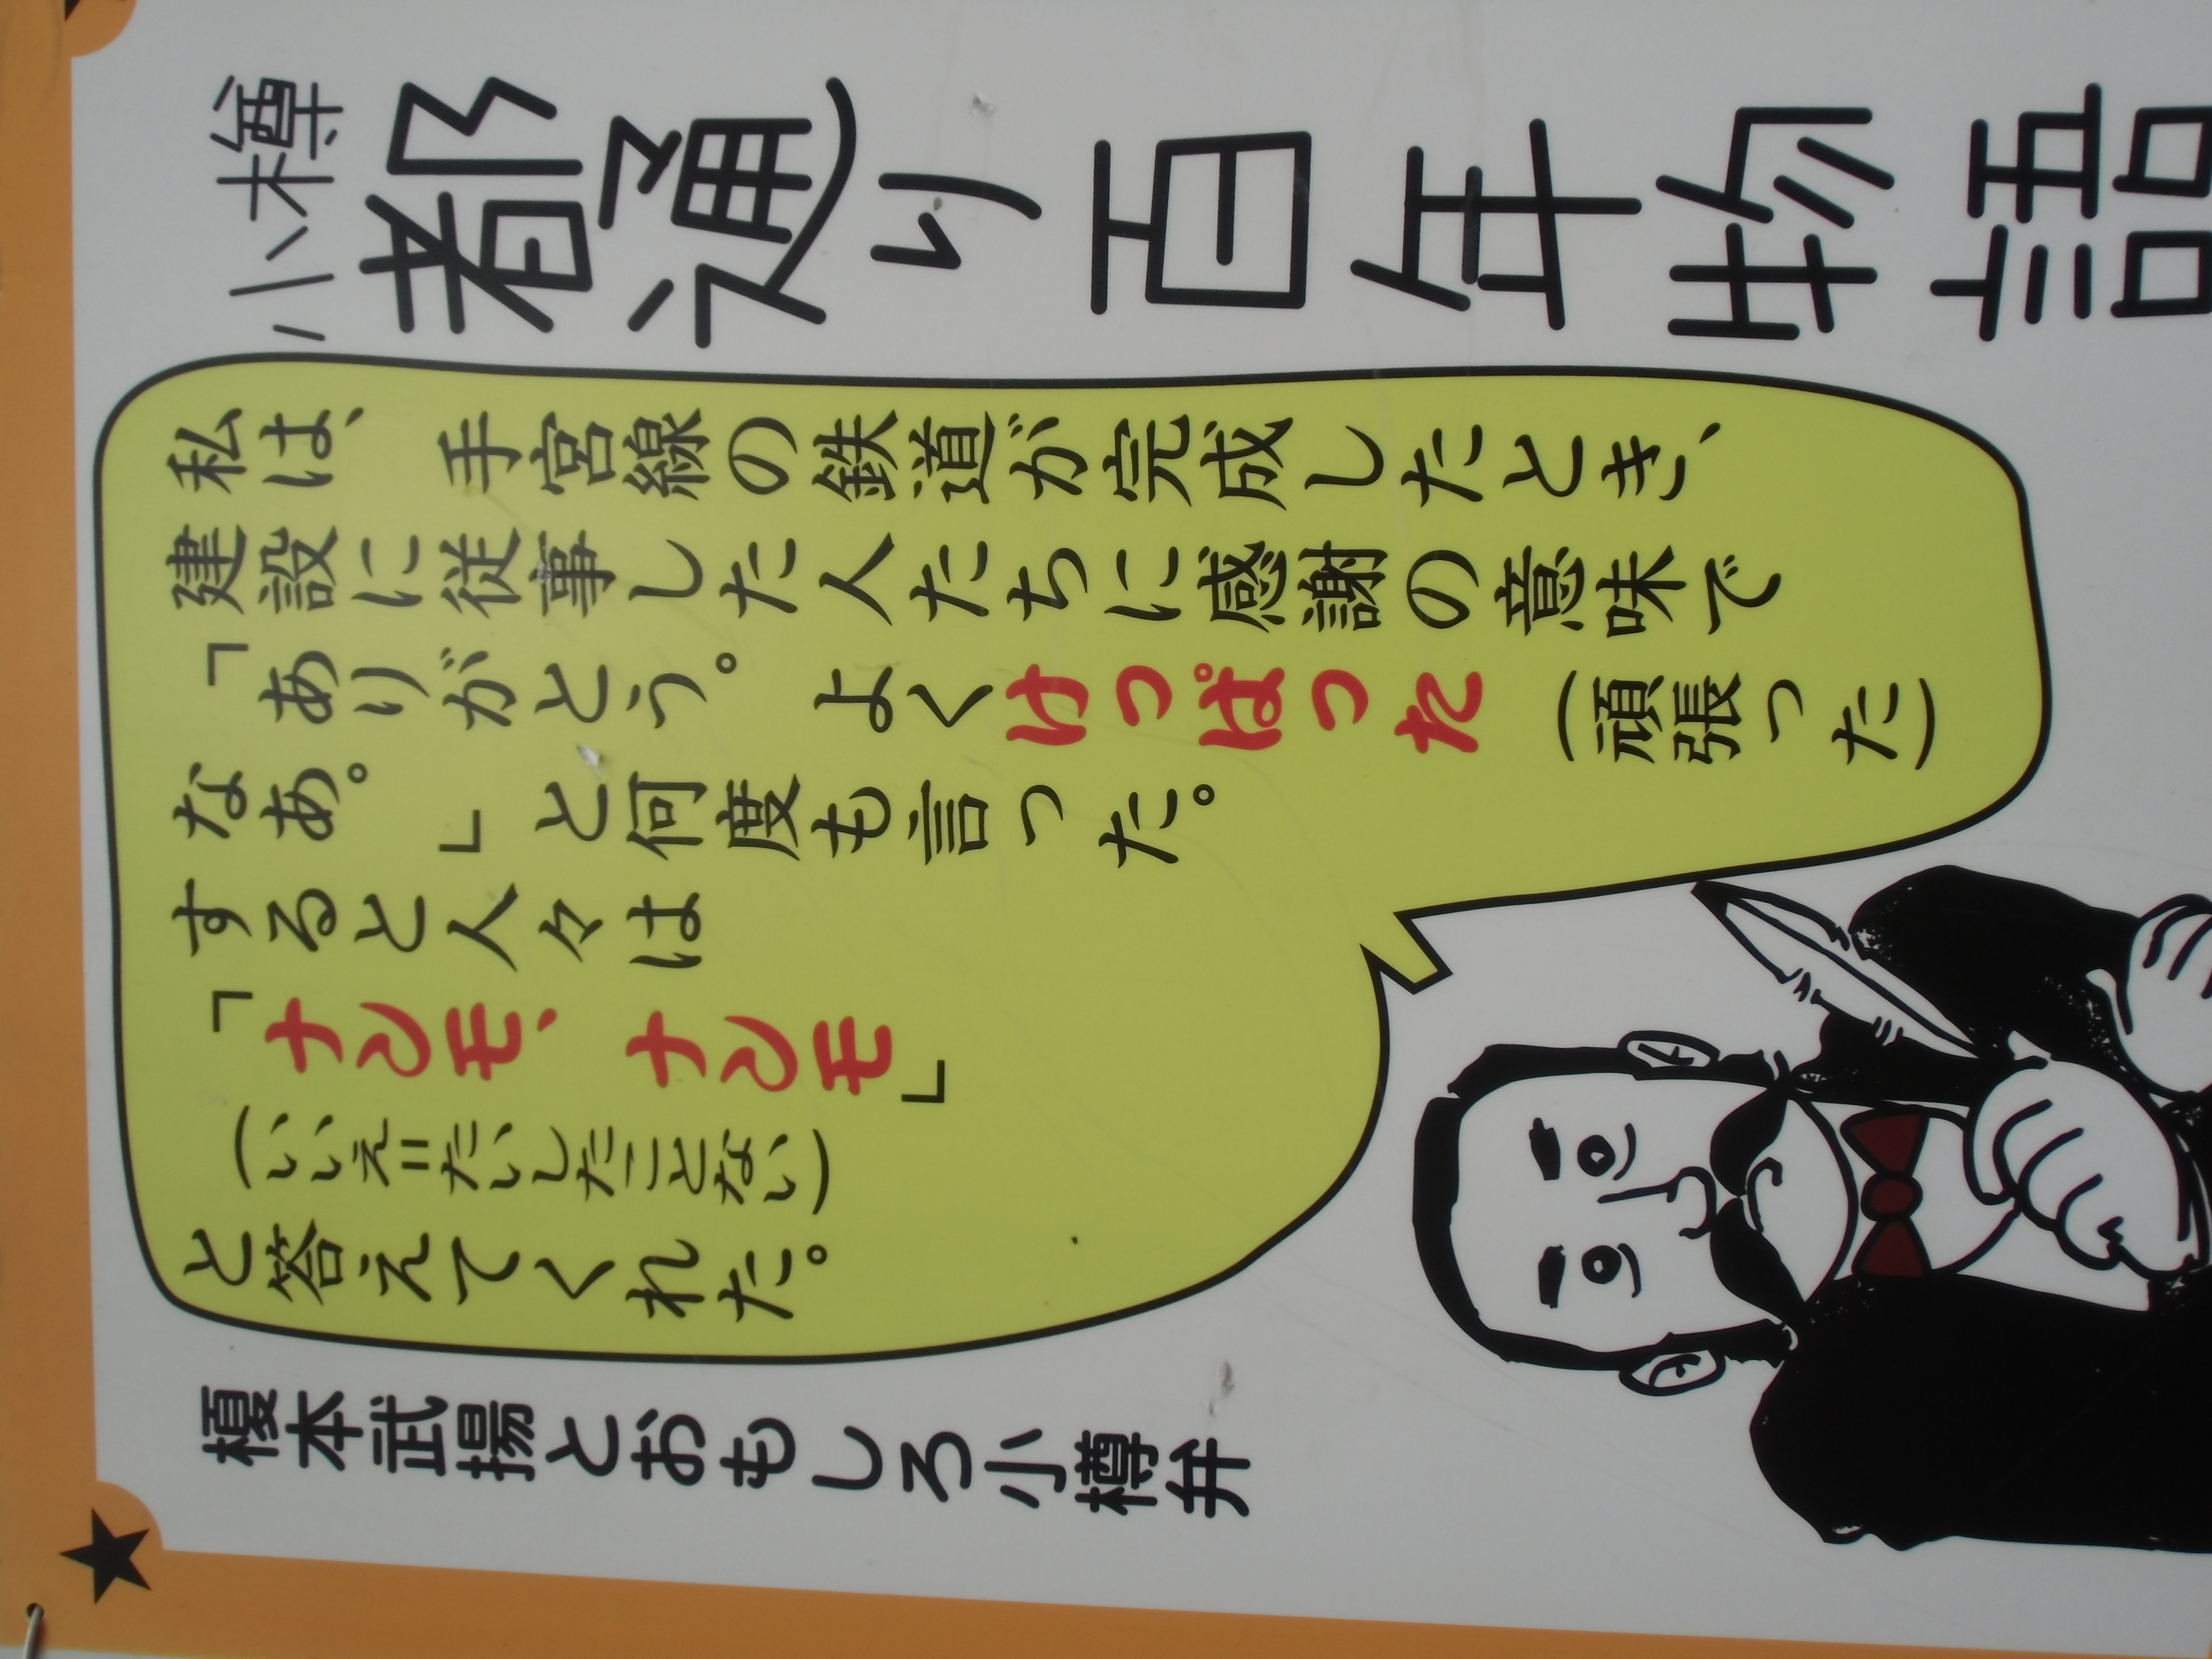 小樽
都通り百年物語
私は、手宮線の鉄道が完成したとき、
建設に従事した人たちに感謝の意味で
「ありがとう。よくけっぱった(頑張った)
なあ。」と何度も言った。
すると人々は
「ナンモ、ナンモ」
(いいえ=たいしたことない)
と答えてくれた。
榎本武揚とおもしろ小樽弁